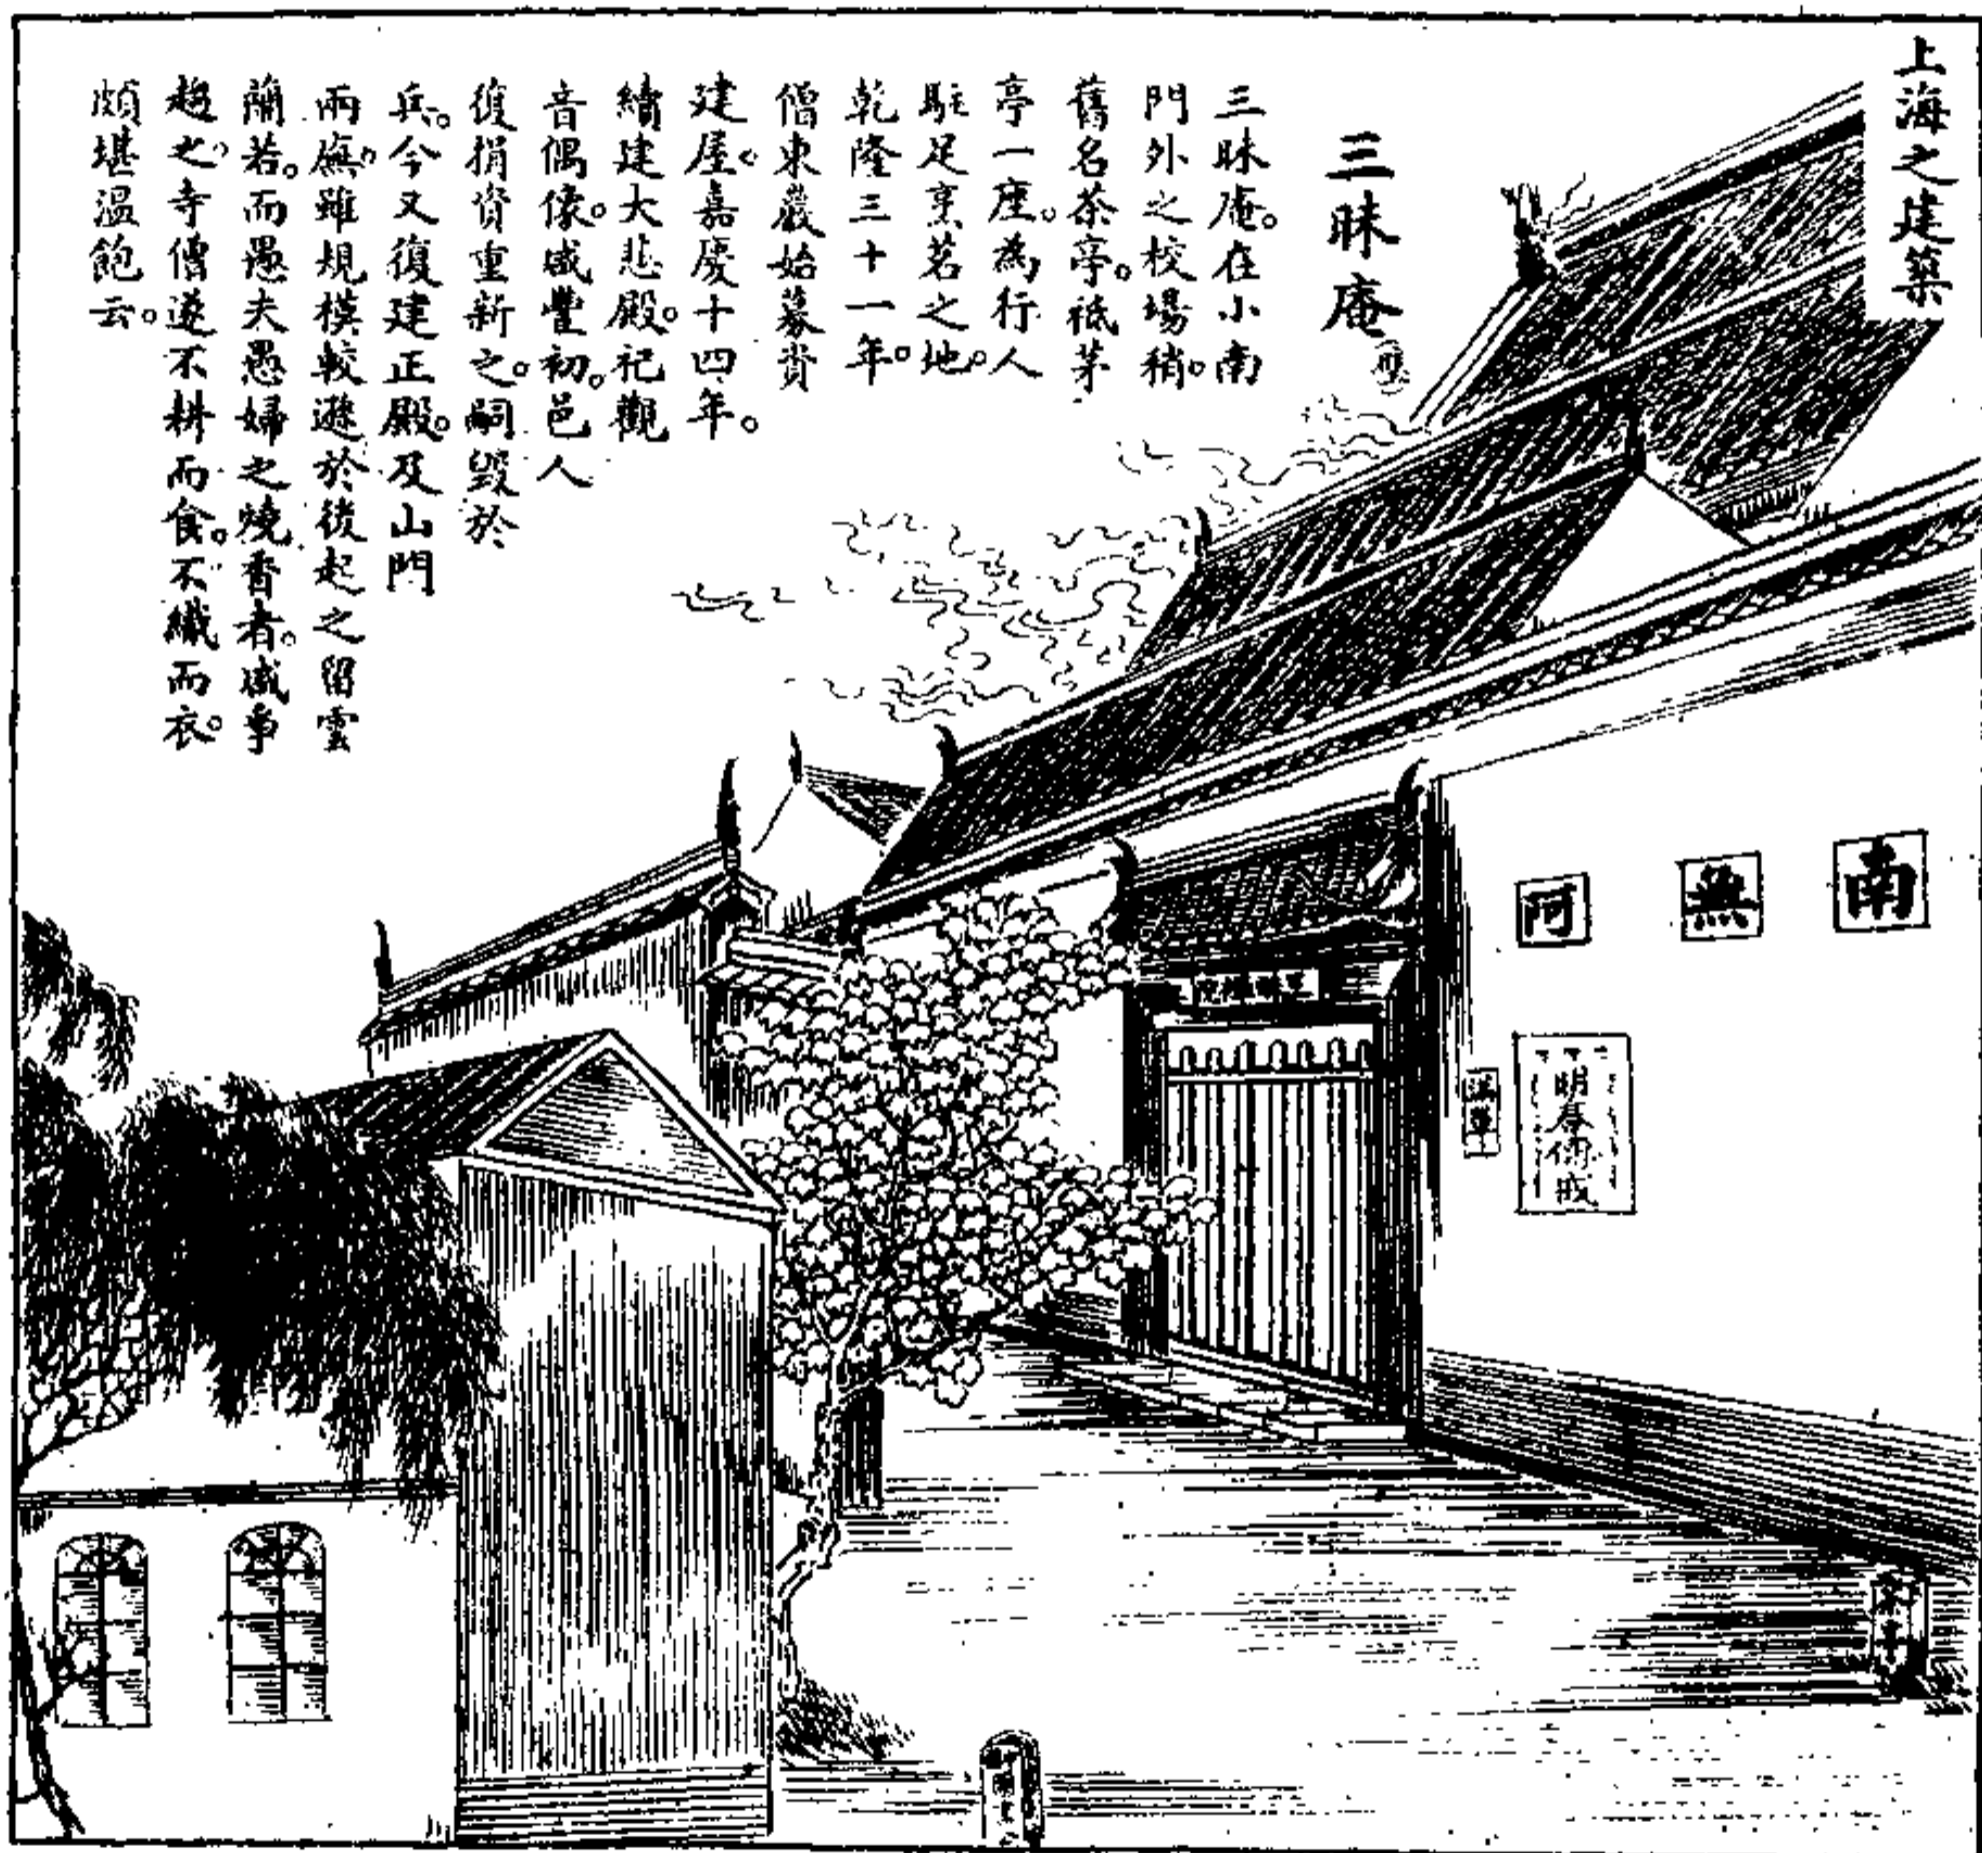 上海之建築
三昧庵
三昧庵。在小南
門外之校場稍。
舊名茶亭。祇茅
亭一座。為行人
駐足烹茗之地。
乾隆三十一年。
僧東巖始募貲
建屋。嘉慶十四年。
續建大悲殿。祀觀
音偶像。咸豐初。邑人
復捐資重新之。嗣毀於
兵。今又復建正殿。及山門
兩廡。雖規模較遜於後起之留雲
蘭若。而愚夫愚婦之燒香者。咸爭
趨之。寺僧遂不耕而食。不織而衣。
頗堪溫飽云。
南
無
阿
明春傳戒